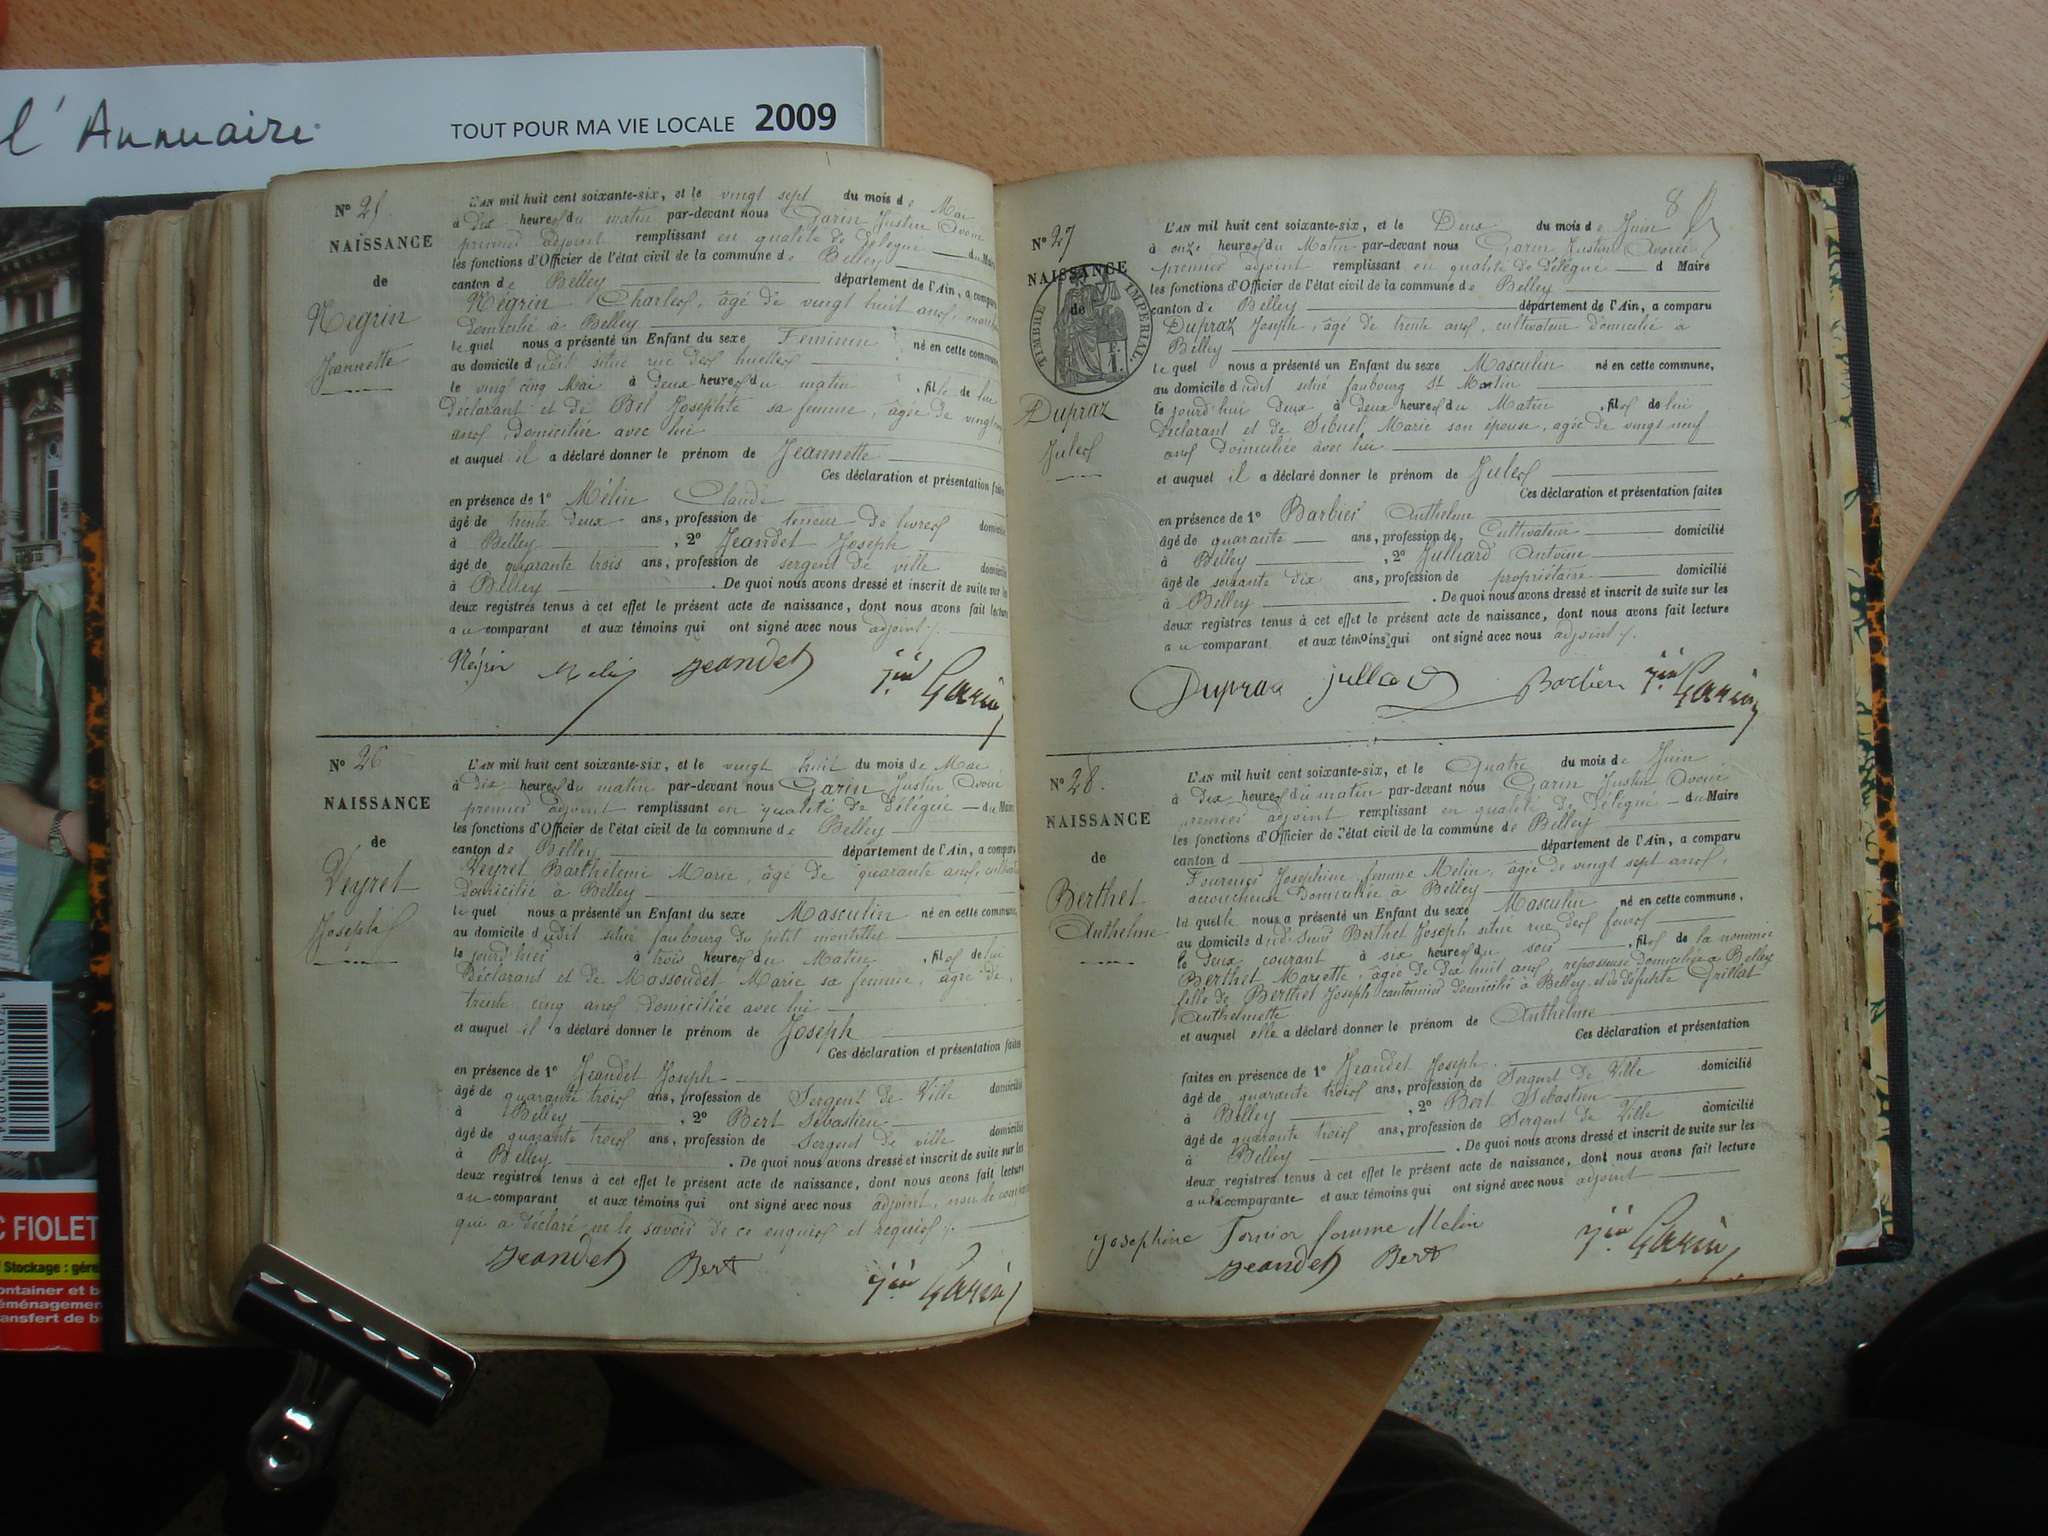 l'Annuaire
TOUT POUR MA VIE LOCALE 2009
N° 25
NAISSANCE
de
Negrin
Jeannette
L'AN mil huit cent soixante-six, et le vingt sept du mois de Mai
à dix heures du matin par-devant nous Garin Justin Avoué
premier adjoint remplissant en qualité de délégué du Maire
les fonctions d'Officier de l'état civil de la commune de Belley
canton de Belley département de l'Ain, a comparu
Négrin Charles, âgé de vingt huit ans,
domicilié à Belley
le quel nous a présenté un Enfant du sexe Feminin né en cette commune,
au domicile dudit situé rue des
le vingt cinq Mai à deux heures du matin, fille de lui
déclarant et de Bel Josephte sa femme, âgée de vingt
ans, domiciliée avec lui
et auquel il a déclaré donner le prénom de Jeannette
Ces déclaration et présentation faites
en présence de 1° Mélin Claude
âgé de trente deux ans, profession de teneur de livres domicilié
à Belley, 2° Jeandet Joseph
âgé de quarante trois ans, profession de sergent de ville domicilié
à Belley. De quoi nous avons dressé et inscrit de suite sur les
deux registres tenus à cet effet le présent acte de naissance, dont nous avons fait lecture
au comparant et aux témoins qui ont signé avec nous adjoint.
Négrin Melin Jeandet Jin Garin
N° 26
NAISSANCE
de
Veyret
Joseph
L'AN mil huit cent soixante-six, et le vingt huit du mois de Mai
à dix heures du matin par-devant nous Garin Justin Avoué
premier adjoint remplissant en qualité de délégué du Maire
les fonctions d'Officier de l'état civil de la commune de Belley
canton de Belley département de l'Ain, a comparu
Veyret Barthélemi Marie, âgé de quarante ans,
domicilié à Belley
le quel nous a présenté un Enfant du sexe Masculin né en cette commune,
au domicile dudit situé faubourg du petit
le jourd'hui à trois heures du Matin, fils de lui
déclarant et de Massoudet Marie sa femme, âgée de
trente cinq ans domiciliée avec lui
et auquel il a déclaré donner le prénom de Joseph
Ces déclaration et présentation faites
en présence de 1° Jeandet Joseph
âgé de quarante trois ans, profession de Sergent de Ville domicilié
à Belley, 2° Bert Sébastien
âgé de quarante trois ans, profession de Sergent de ville domicilié
à Belley. De quoi nous avons dressé et inscrit de suite sur les
deux registres tenus à cet effet le présent acte de naissance, dont nous avons fait lecture
au comparant et aux témoins qui ont signé avec nous adjoint, non le comparant
qui a déclaré ne le savoir de ce enquis et requis.
Jeandet Bert Jin Garin
8
N° 27
NAISSANCE
de
TIMBRE IMPERIAL
Dupraz
Jules
L'AN mil huit cent soixante-six, et le Deux du mois de Juin
à onze heures du Matin par-devant nous Garin Justin Avoué
premier adjoint remplissant en qualité de délégué d Maire
les fonctions d'Officier de l'état civil de la commune de Belley
canton de Belley département de l'Ain, a comparu
Dupraz Joseph, âgé de trente ans, cultivateur domicilié à
Belley
le quel nous a présenté un Enfant du sexe Masculin né en cette commune,
au domicile dudit situé faubourg St Martin
le jourd'hui deux à deux heures du Matin, fils de lui
déclarant et de Sibuet Marie son épouse, agée de vingt neuf
ans domiciliée avec lui
et auquel il a déclaré donner le prénom de Jules
Ces déclaration et présentation faites
en présence de 1° Barbier Anthelme
âgé de quarante ans, profession de Cultivateur domicilié
à Belley, 2° Julliard Antoine
âgé de soixante dix ans, profession de propriétaire domicilié
à Belley. De quoi nous avons dressé et inscrit de suite sur les
deux registres tenus à cet effet le présent acte de naissance, dont nous avons fait lecture
au comparant et aux témoins qui ont signé avec nous adjoint.
Dupraz Barbier Jin Garin
N° 28.
NAISSANCE
de
Berthet
Anthelme
L'AN mil huit cent soixante-six, et le Quatre du mois de Juin
à dix heures du matin par-devant nous Garin Justin Avoué
premier adjoint remplissant en qualité de délégué du Maire
les fonctions d'Officier de l'état civil de la commune de Belley
canton d département de l'Ain, a comparu
Fournier Josephine femme Melin, âgée de vingt sept ans,
accoucheuse domiciliée à Belley
laquelle nous a présenté un Enfant du sexe Masculin né en cette commune,
au domicile du sieur Berthet Joseph situé rue des fours
le deux courant à six heures du soir, fils de la nommée
Berthet Mariette, âgée de dix huit ans, repasseuse domiciliée à Belley
fille de Berthet Joseph cantonnier domicilié à Belley et de défunte Grillet
Anthelmette
et auquel elle a déclaré donner le prénom de Anthelme
Ces déclaration et présentation
faites en présence de 1° Jeandet Joseph
âgé de quarante trois ans, profession de Sergent de Ville domicilié
à Belley, 2° Bert Sébastien
âgé de quarante trois ans, profession de Sergent de Ville domicilié
à Belley. De quoi nous avons dressé et inscrit de suite sur les
deux registres tenus à cet effet le présent acte de naissance, dont nous avons fait lecture
a la comparante et aux témoins qui ont signé avec nous adjoint
Josephine Fornier famme Melin Jin Garin
Jeandet Bert
C FIOLET
Stockage : gére
ontainer et b
éménagemen
ansfert de b